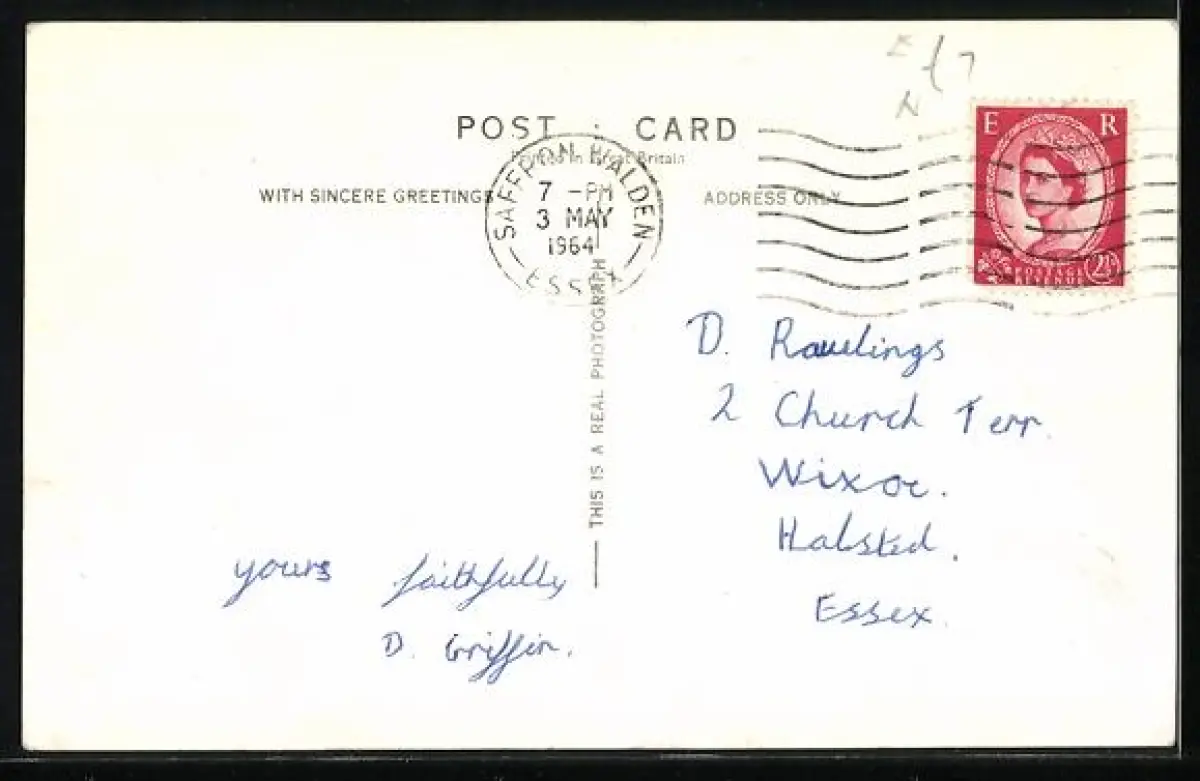 POST CARD
Printed in Great Britain
WITH SINCERE GREETINGS
ADDRESS ONLY
SAFFRON WALDEN
7 -PM
3 MAY
1964
ESSEX
THIS IS A REAL PHOTOGRAPH
E R
POSTAGE
REVENUE
2½D
D. Rawlings
2 Church Terr.
Wixoe.
Halsted.
Essex.
yours faithfully
D. Griffin.